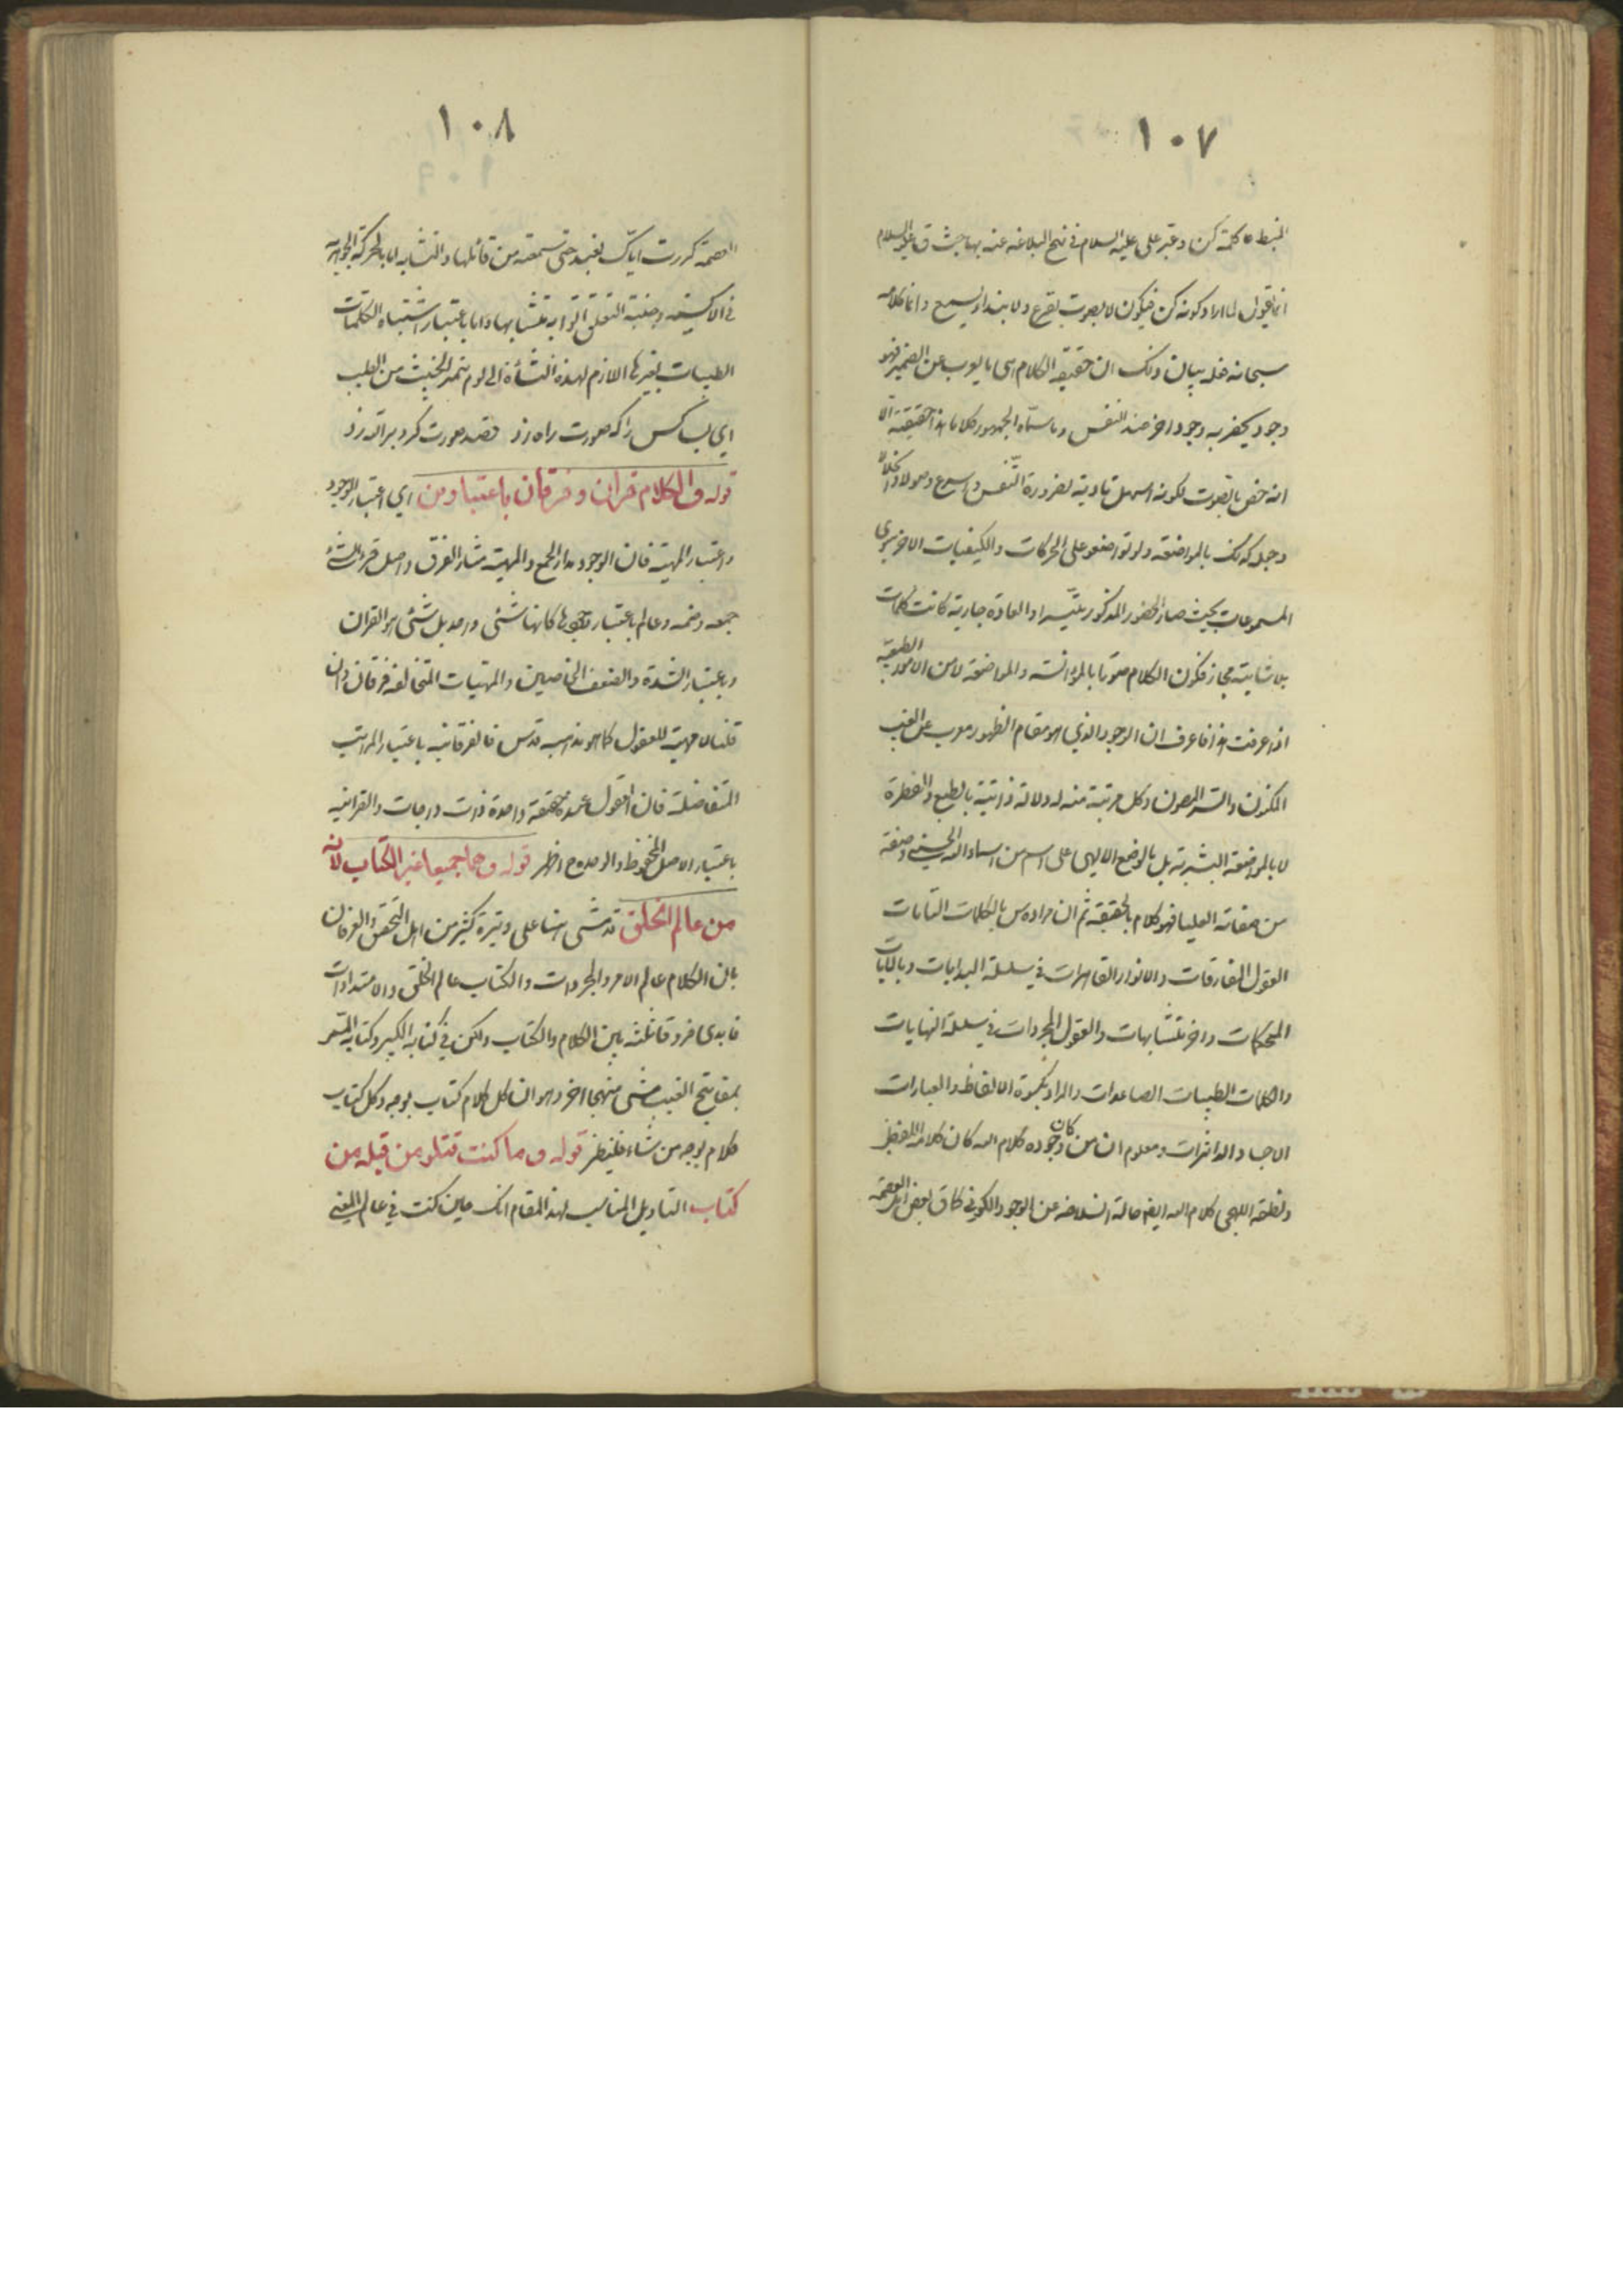 ١٠٧
المنبسط كلمة كن وعبر على عليه السلام في نهج البلاغه عنه بها حيث ق عليه السلام
انما يقول لما اراد كونه كن فيكون لا بصوت يقرع ولا بنداء يسمع وانما كلامه
سبحانه فعله بيان ذلك ان حقيقه الكلام هى ما يعرب عن الضمير فهو
وجود يحضر به وجود اخر عند النفس وما سماه الجمهور كلاما هذا حقيقته الا
انه خص بالصوت لكونه اسهل تادية لضرورة التنفس واسرع وصولا
وجعل كذلك بالمواضعة ولو تواضعوا على الحركات والكيفيات الاخر سوى
المسموعات بحيث صار الحضور المذكور متيسرا والعادة جارية كانت كلمات
بلا شايبة مجاز فكون الكلام صوتا بالموانسة والمواضعة لا من الامور الطبيعيه
اذا عرفت هذا فاعرف ان الوجود الذي هو مقام الظهور معرب عن الغيب
المكنون والسر المصون وكل مرتبة منه له دلالة ذاتية بالطبع والفطرة
لا بالمواضعة البشرية بل بالوضع الالهى على اسم من اسماء الله الحسنى وصفة
من صفاته العليا فهو كلام بالحقيقه ثم ان مراده س بالكلمات التامات
العقول المفارقات والانوار القاهرات في سلسلة البدايات وبالايات
المحكمات واخر متشابهات والعقول المجردات في سلسلة النهايات
والكلمات الطيبات الصاعدات والمراد بكسوة الالفاظ والعبارات
الاجساد الداثرات ومعلوم ان من كان وجوده كلام الله كان كلامه اللفظى
ونطقه اللهجى كلام الله ايضا حالة انسلاخه عن الوجود الكونى كما ق بعض اهل العصمة
١٠٨
العصمة كررت اياك نعبد حتى سمعته من قائلها والتشابه اما بالحركة الجوهريه
في الاكسية وجنبة التعلق الواته تتشابها واما باعتبار اشتباه الكلمات
الطيبات بغيرها اللازم لهذه النشأة الى يوم يتميز الخبيث من الطيب
اي بسا كس را كه صورت راه زد قصد صورت كرد بر الله زد
قوله ق الكلام قران وفرقان باعتبارين اي اعتبار الوجود
واعتبار المهية فان الوجود مدار الجمع والمهية مثار الفرق واصل قرء الشئ
جمعه وضمه وعالم باعتبار وجودها كانها شئى واحد بل شئى هو القران
وباعتبار الشدة والضعف الخاصيين والمهيات المتخالفه فرقان وان
قلنا لا مهية للعقول كما هو مذهبه قدس فالفرقانيه باعتبار المراتب
المتفاضلة فان العقول عنده حقيقة واحدة ذات درجات والقرانيه
باعتبار الاصل المحفوظ والوحدة ح اظهر قوله ق هما جميعا غير الكتاب لانه
من عالم الخلق قد مشى هنا على وتيرة كثير من اهل التحقيق والعرفان
بان الكلام عالم الامر والمجردات والكتاب عالم الخلق والامتدادات
فابدى فروقا ثلثه بين الكلام والكتاب ولكن في كتابه الكبير وكتابه المسمى
بمفاتيح الغيب مشى منهجا اخر وهو ان كل كلام كتاب بوجه وكل كتاب
كلام بوجه من شاء فلينظر قوله ق وما كنت تتلو من قبله من
كتاب التاويل المناسب لهذا المقام انك حين كنت في عالم المعنى